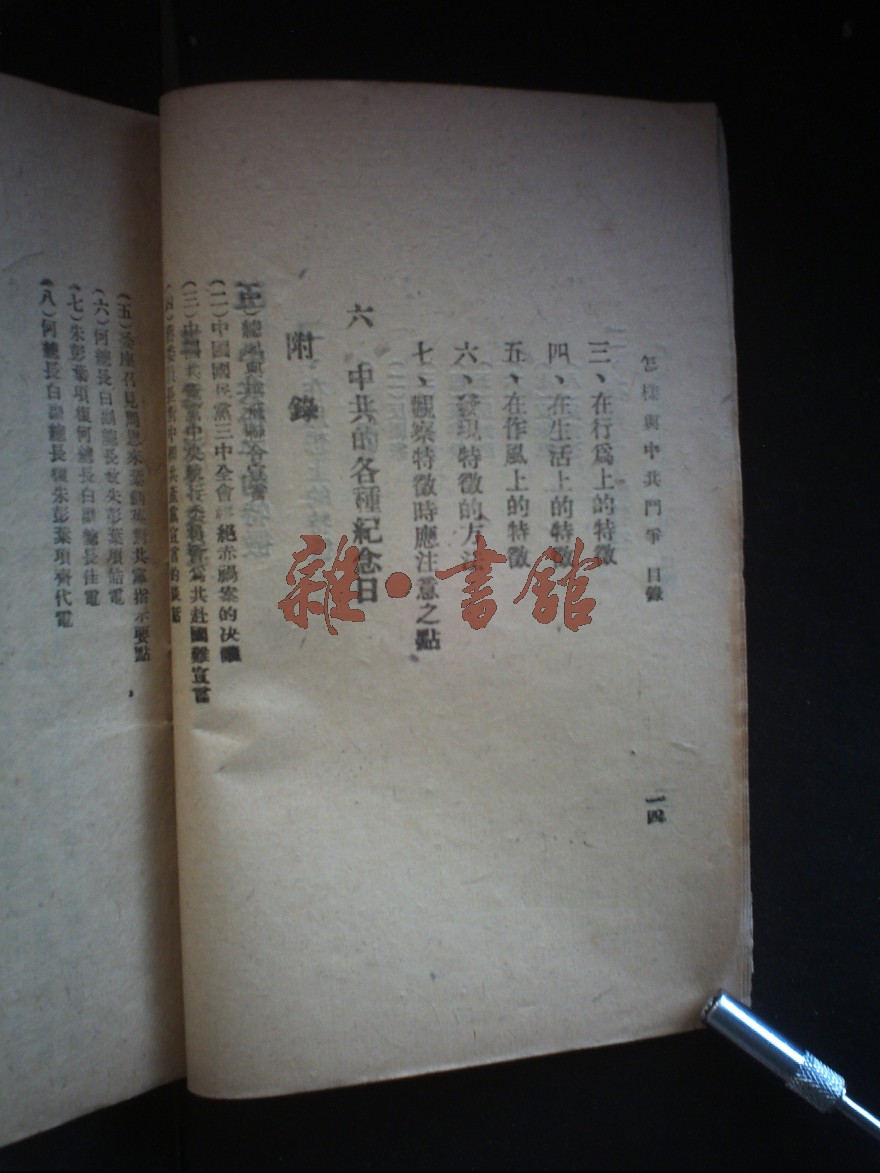 怎樣與中共鬥爭 目錄
一四
三、在行爲上的特徵
四、在生活上的特徵
五、在作風上的特徵
六、發現特徵的方法
七、觀察特徵時應注意之點
六 中共的各種紀念日
附錄
(二)中國國民黨三中全會根絕赤禍案的決議
(三)中國共產黨中央執行委員會爲共赴國難宣言
(五)委座召見周恩來葉劍英對共黨指示要點
(六)何總長白副總長致朱彭葉項皓電
(七)朱彭葉項復何總長白副總長佳電
(八)何總長白副總長復朱彭葉項齊代電
雜·書館